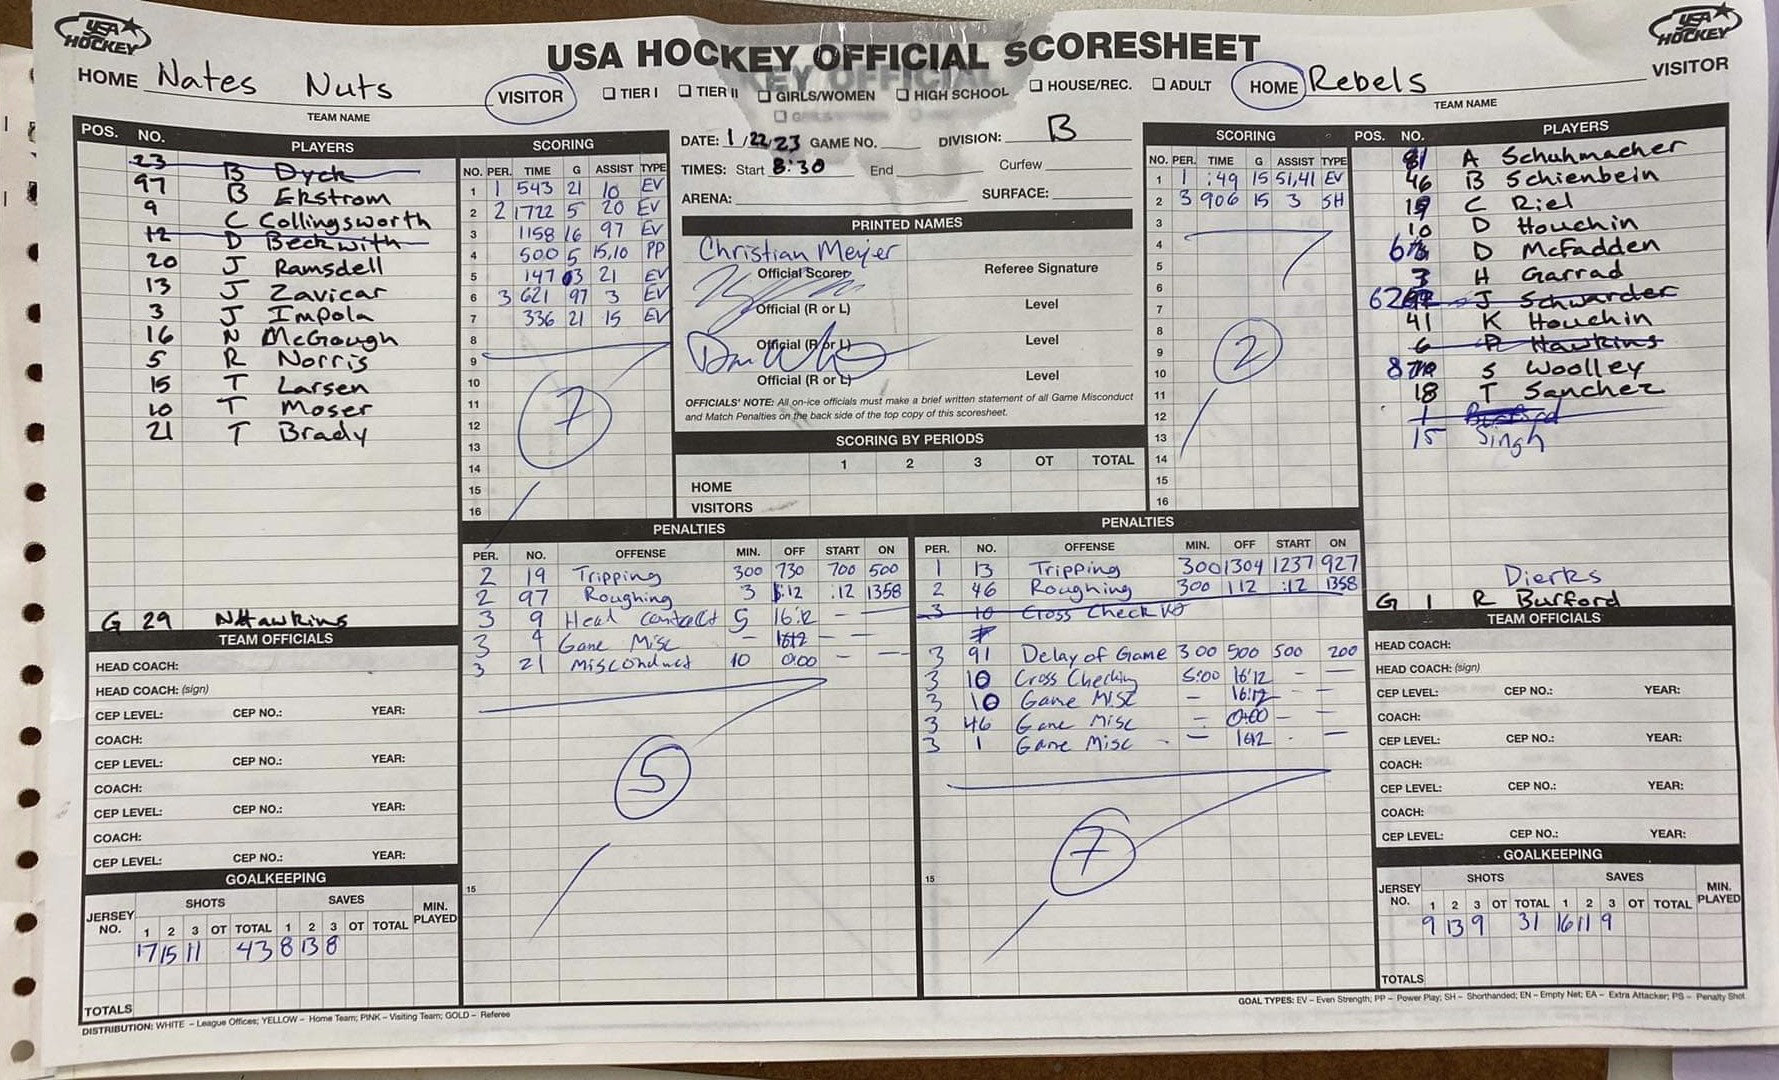 USA HOCKEY
USA HOCKEY OFFICIAL SCORESHEET
USA HOCKEY
HOME Nates Nuts VISITOR
TEAM NAME
☐ TIER I ☐ TIER II ☐ GIRLS/WOMEN ☐ HIGH SCHOOL ☐ HOUSE/REC. ☐ ADULT
HOME Rebels VISITOR
TEAM NAME
POS. NO. PLAYERS
23 B Dyck
97 B Ekstrom
9 C Collingsworth
12 D Beckwith
20 J Ramsdell
13 J Zavicar
3 J Impola
16 N McGough
5 R Norris
15 T Larsen
10 T Moser
21 T Brady
G 29 N Hawkins
SCORING
NO. PER. TIME G ASSIST TYPE
1 1 543 21 10 EV
2 2 1722 5 20 EV
3 1158 16 97 EV
4 500 5 15,10 PP
5 147 3 21 EV
6 3 621 97 3 EV
7 336 21 15 EV
8
9
10
11
12
13
14
15
16
7
DATE: 1/22/23 GAME NO. DIVISION: B
TIMES: Start 8:30 End Curfew
ARENA: SURFACE:
PRINTED NAMES
Christian Meyer
Official Scorer Referee Signature
Official (R or L) Level
Official (R or L) Level
Official (R or L) Level
OFFICIALS' NOTE: All on-ice officials must make a brief written statement of all Game Misconduct
and Match Penalties on the back side of the top copy of this scoresheet.
SCORING BY PERIODS
1 2 3 OT TOTAL
HOME
VISITORS
SCORING
NO. PER. TIME G ASSIST TYPE
1 1 :49 15 51,41 EV
2 3 906 15 3 SH
3
4
5
6
7
8
9
10
11
12
13
14
15
16
2
POS. NO. PLAYERS
A Schuhmacher
46 B Schienbein
19 C Riel
10 D Houchin
D McFadden
3 H Garrad
62 J Schwarder
41 K Houchin
6 R Hawkins
S Woolley
18 T Sanchez
1
15 Singh
Dierks
G 1 R Burford
PENALTIES
PER. NO. OFFENSE MIN. OFF START ON
2 19 Tripping 300 730 700 500
2 97 Roughing 3 :12 :12 1358
3 9 Head contact 5 16:12 – –
3 9 Game Misc – 1612 – –
3 21 Misconduct 10 0:00 – –
15
5
PENALTIES
PER. NO. OFFENSE MIN. OFF START ON
1 13 Tripping 300 1304 1237 927
2 46 Roughing 300 112 :12 1358
3 10 Cross Check
3 91 Delay of Game 300 500 500 200
3 10 Cross Checking 5:00 16:12 – –
3 10 Game Misc – 16:12 – –
3 46 Game Misc – 0:00 – –
3 1 Game Misc – 1612 – –
15
7
TEAM OFFICIALS
HEAD COACH:
HEAD COACH: (sign)
CEP LEVEL: CEP NO.: YEAR:
COACH:
CEP LEVEL: CEP NO.: YEAR:
COACH:
CEP LEVEL: CEP NO.: YEAR:
COACH:
CEP LEVEL: CEP NO.: YEAR:
GOALKEEPING
SHOTS SAVES
JERSEY NO. 1 2 3 OT TOTAL 1 2 3 OT TOTAL MIN. PLAYED
17 15 11 43 8 13 8
TOTALS
TEAM OFFICIALS
HEAD COACH:
HEAD COACH: (sign)
CEP LEVEL: CEP NO.: YEAR:
COACH:
CEP LEVEL: CEP NO.: YEAR:
COACH:
CEP LEVEL: CEP NO.: YEAR:
COACH:
CEP LEVEL: CEP NO.: YEAR:
GOALKEEPING
SHOTS SAVES
JERSEY NO. 1 2 3 OT TOTAL 1 2 3 OT TOTAL MIN. PLAYED
9 13 9 31 16 11 9
TOTALS
DISTRIBUTION: WHITE – League Offices; YELLOW – Home Team; PINK – Visiting Team; GOLD – Referee
GOAL TYPES: EV – Even Strength; PP – Power Play; SH – Shorthanded; EN – Empty Net; EA – Extra Attacker; PS – Penalty Shot